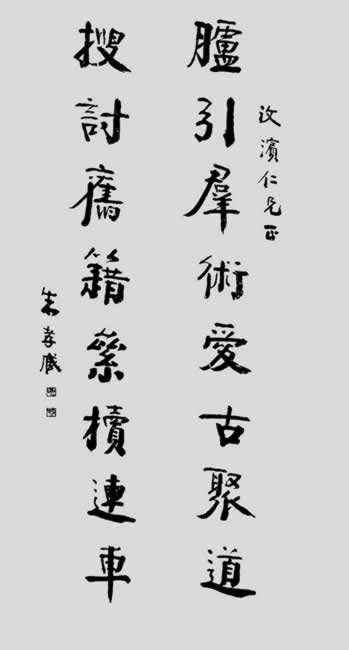 汶濱仁兄正
臚引羣術愛古聚道
搜討舊籍櫝連車
朱孝臧